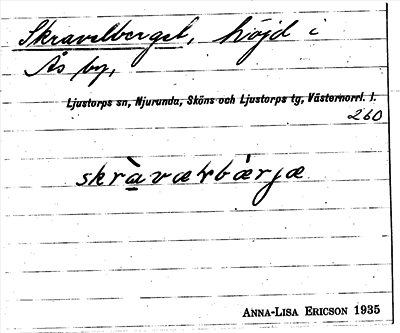 Skravelberget, höjd i
Ås by,
Ljustorps sn, Njurunda, Sköns och Ljustorps tg, Västernorrl. l.
260
skràværbärjæ
ANNA-LISA ERICSON 1935